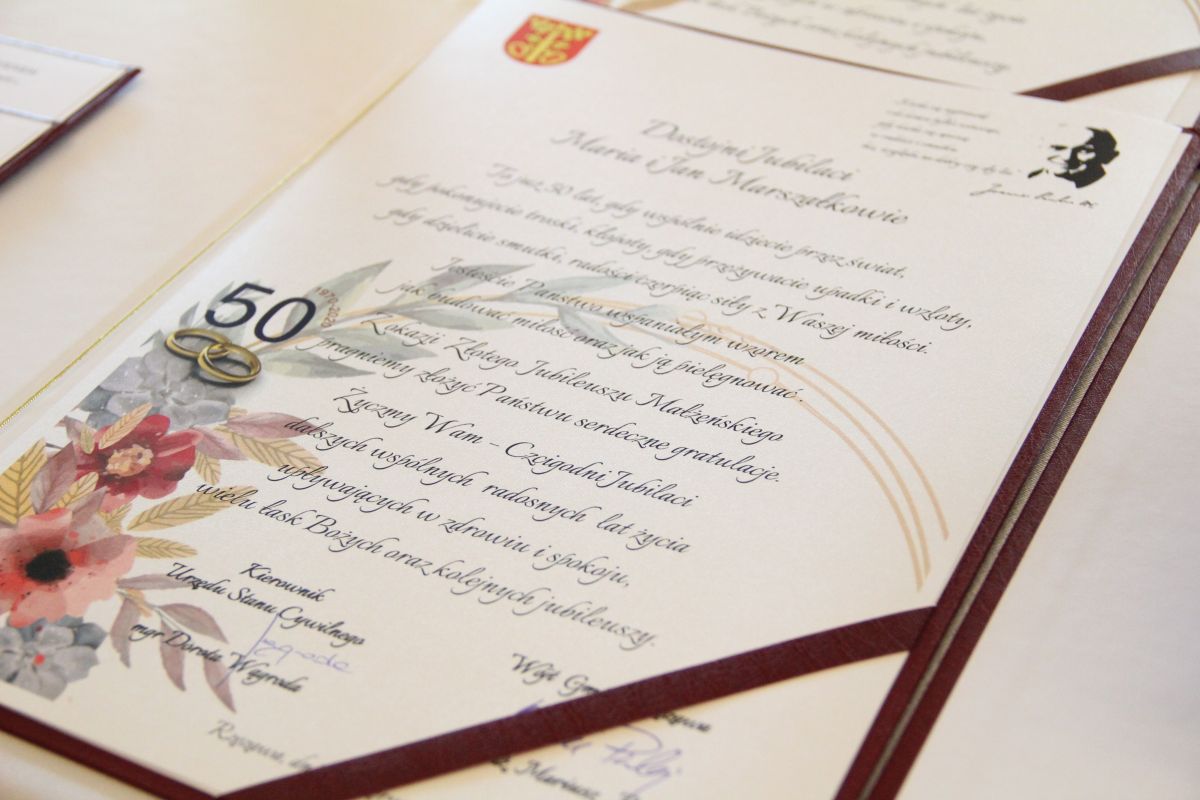 Dostojni Jubilaci
Maria i Jan Marszałkowie
To już 50 lat, gdy wspólnie idziecie przez świat,
gdy pokonujecie troski, kłopoty, gdy przeżywacie upadki i wzloty,
gdy dzielicie smutki, radości czerpiąc siły z Waszej miłości.
Jesteście Państwo wspaniałym wzorem
jak budować miłość oraz jak ją pielęgnować.
Z okazji Złotego Jubileuszu Małżeńskiego
pragniemy złożyć Państwu serdeczne gratulacje.
Życzmy Wam – Czcigodni Jubilaci
dalszych wspólnych radosnych lat życia
upływających w zdrowiu i spokoju,
wielu łask Bożych oraz kolejnych jubileuszy.
50
1970
2020
Kierownik
Urzędu Stanu Cywilnego
mgr Dorota Wągroda
Wójt
Mariusz